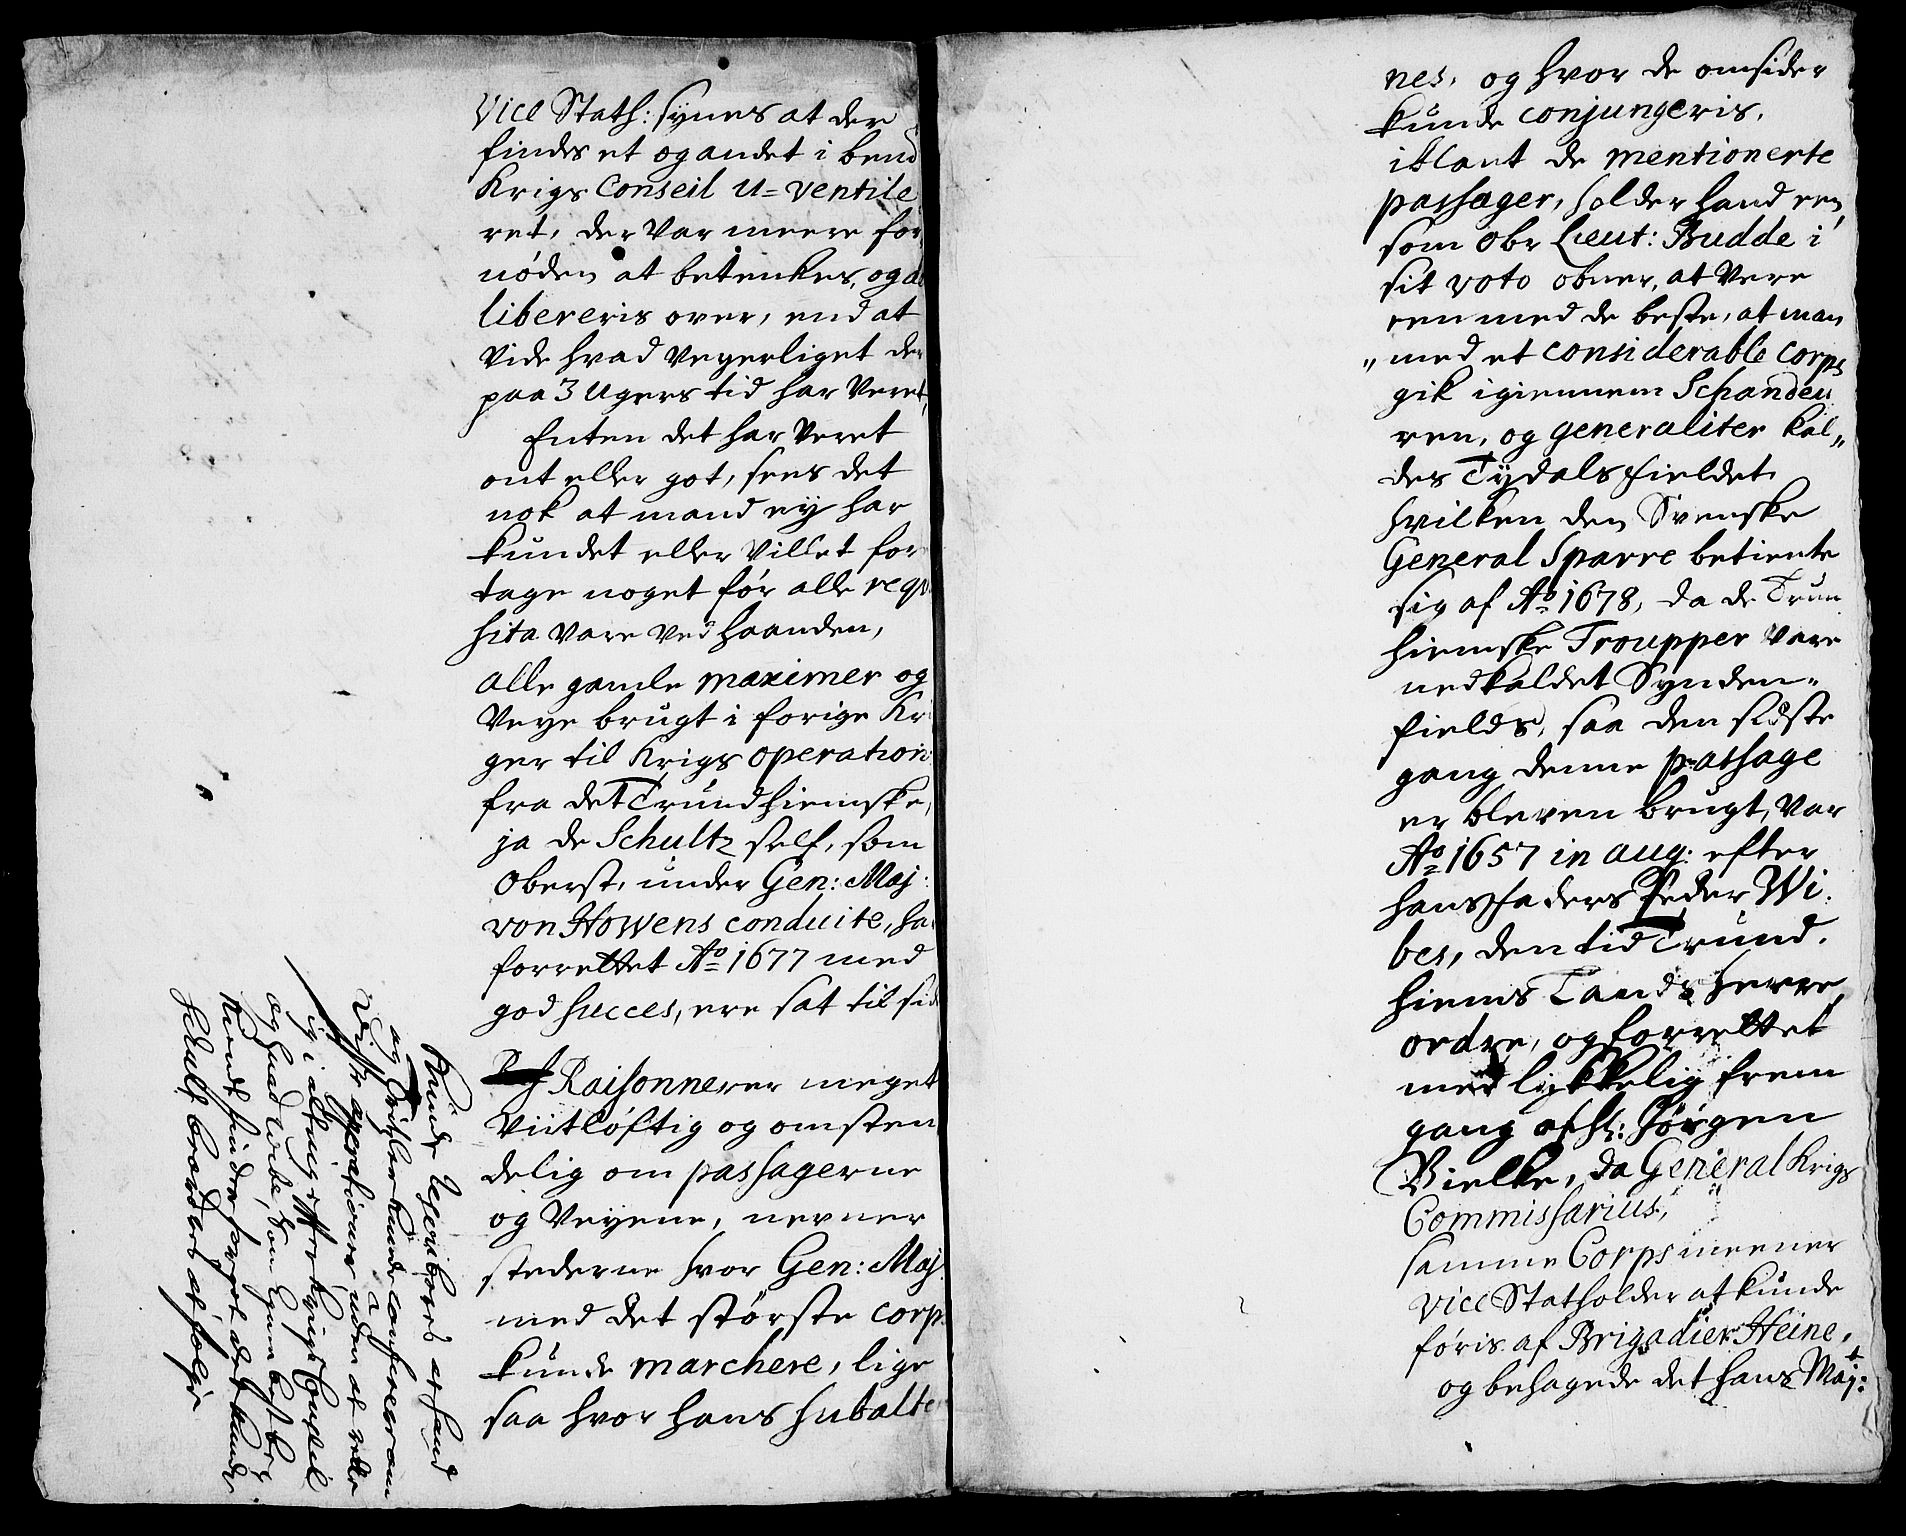 Vice Stath: synes at der
findes et og andet i bend
Krigs Conseil u=ventile
ret, der var meere for
nöden at betenkes, og de
libereris over, end at
vide hvad veyerliget der
paa 3 Ugers tid har veret,
Enten det har veret
ont eller got, sees det
nok at mand ey har
kundet eller villet for
tage noget för alle reqvi
sita vare ved haanden,
Alle gamle maximer og
Veye brugt i forige Kri
ger til Krigs operation
fra det Trundhiemske,
ja de Schultz self, som
Oberst, under Gen: Maj:
von Howens conduite, ha
forrettet Ao 1677 med
god succes, ere sat til sid
Raisonnerer meget
viitlöftig og omsten
delig om passagerne
og Veyene, nevner
stederne hvor Gen: Maj:
med det störste corps
kunde marchere, lige
saa hvor hans subalter
Kunde uden at hand
og kunde confereres om
Visse operationer, uden at rette
sig i alting effter Krigs Conseil
og hvad Wibe, som
kiendt finder det kunde
Schultz ordres at fölge
nes, og hvor de omsider
kunde conjungeris,
iblant de mentionerte
passager, holder hand een,
som Obr Lieut: Budde i
sit voto obner, at vere
een med de beste, at man
„ med et considerable corps
gik igiennem Schandeu
ren, og generaliter kal„
des Tydals fieldet
hvilken den Svenske
General Sparre betiente
sig af Ao 1678, da de Trun
hiemske Troupper vare
nedkaldet Synden„
fields, saa den sidste
gang denne passage
er bleven brugt, var
Ao 1657 in aug: efter
hans faders Peder Wi:
bes, den tid Trund.
hiems Lands herre
ordre, og forrettet
med lykkelig frem
gang af Sl: Jörgen
Bielke, da General Krigs
Commissarius,
samme Corps meener
Vice Statholder at kunde
föris af Brigadier Heine,
og behagede det hans Majt: